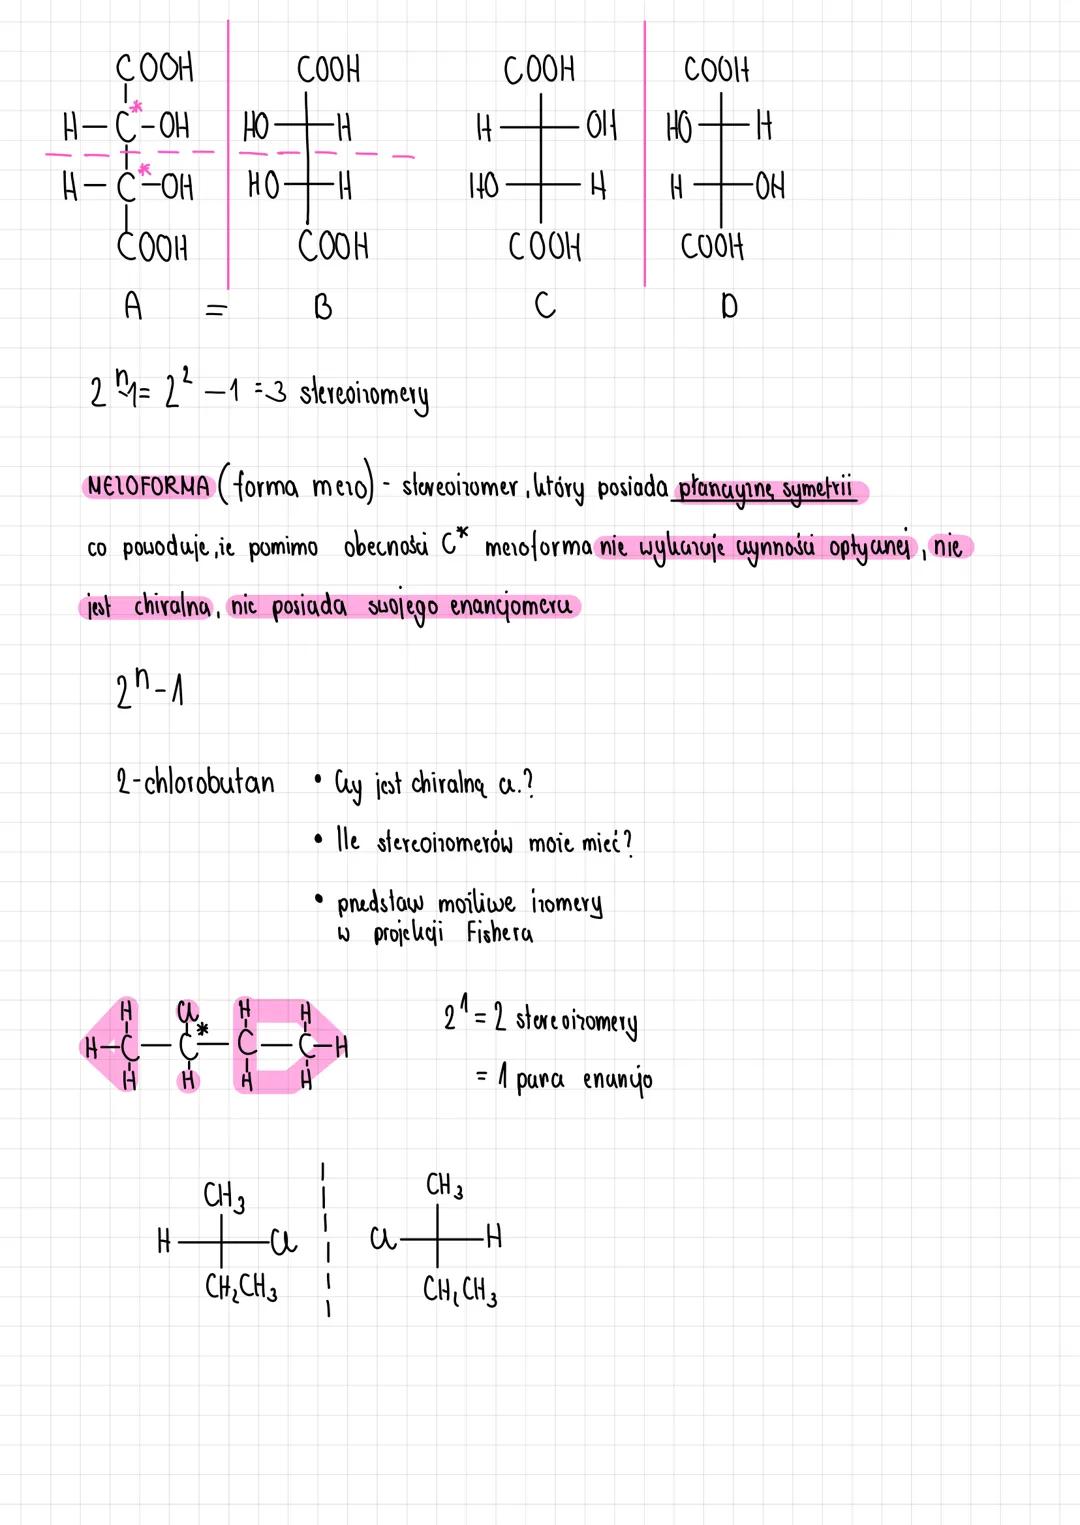 COOH COOH COOH COOH
H-C*-OH HO H H OH HO H
H-C*-OH HO H HO H H OH
COOH COOH COOH COOH
A = B C D
2^n-1 = 2^2 - 1 = 3 stereoizomery
MEZOFORMA (forma mezo) - stereoizomer, który posiada płaszczyznę symetrii
co powoduje, że pomimo obecności C* mezoforma nie wykazuje czynności optycznej, nie
jest chiralna, nie posiada swojego enancjomeru
2^n-1
2-chlorobutan • Czy jest chiralną cz.?
• Ile stereoizomerów może mieć?
• przedstaw możliwe izomery
w projekcji Fishera
H Cl H H
H-C-C*-C-C-H
H H H H
2^1 = 2 stereoizomery
= 1 para enancjo
CH3 CH3
H Cl Cl H
CH2CH3 CH2CH3